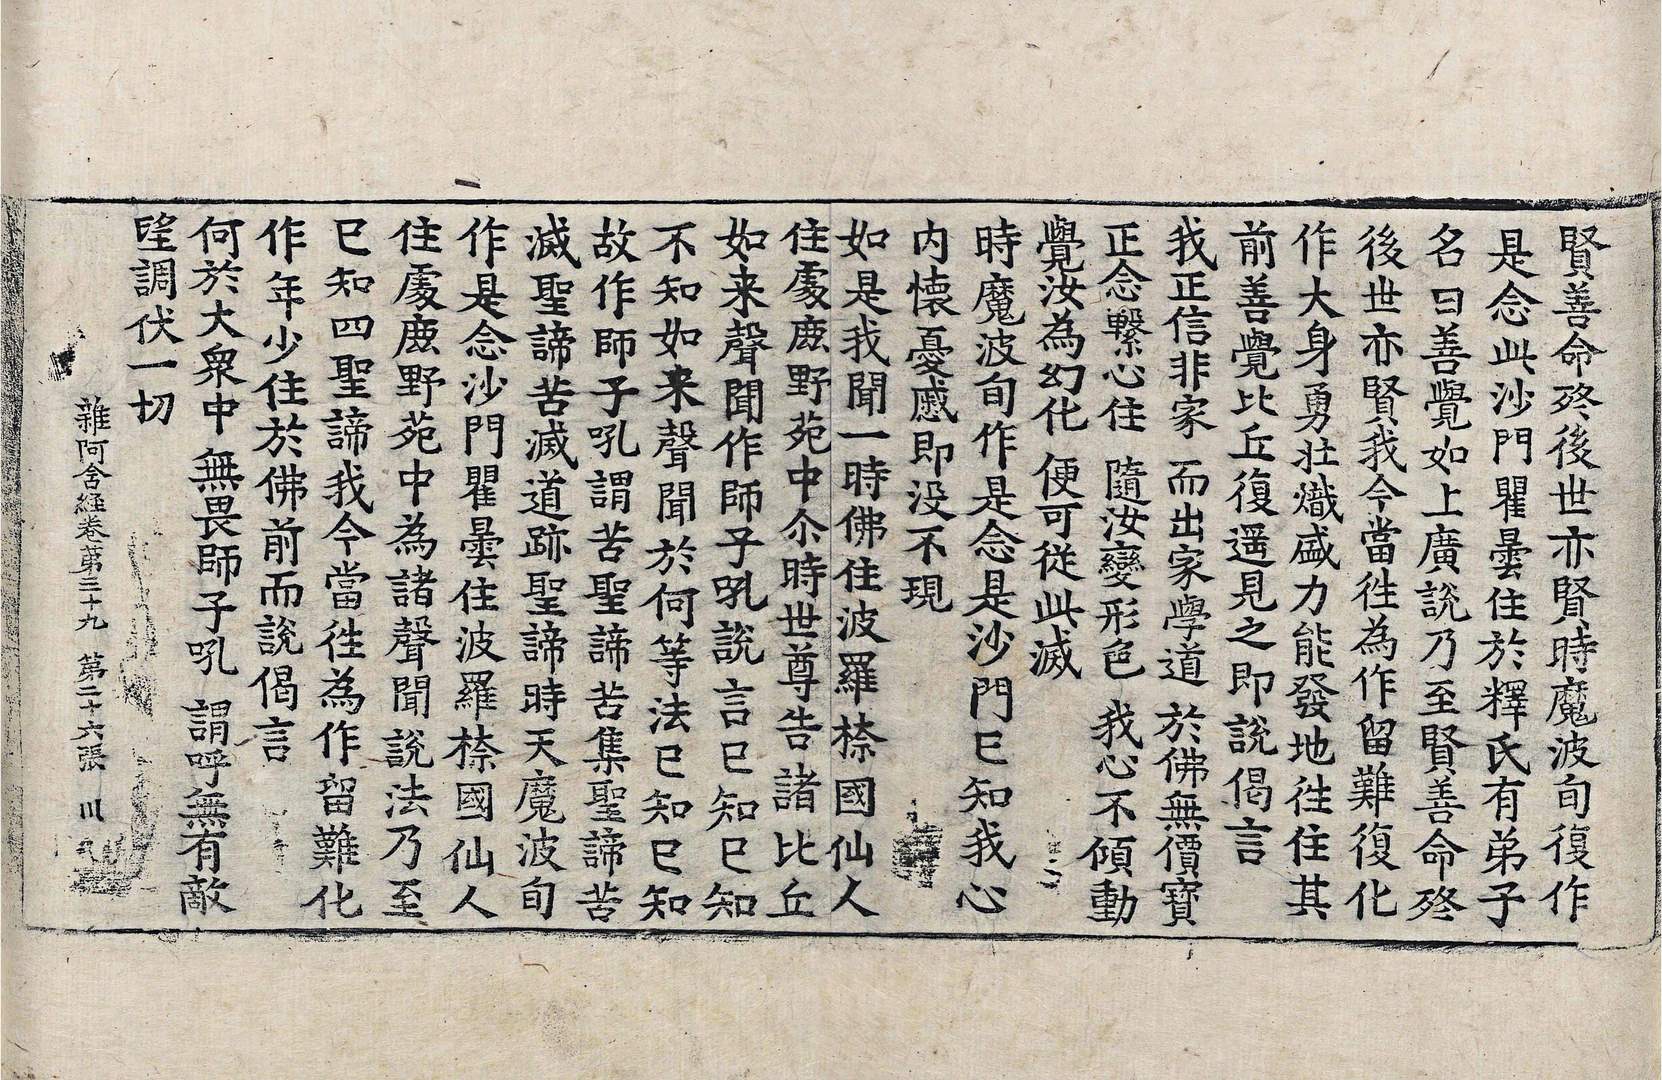 賢善命終後世亦賢時魔波旬復作
是念此沙門瞿曇住於釋氏有弟子
名曰善覺如上廣說乃至賢善命終
後世亦賢我今當往為作留難復化
作大身勇壯熾盛力能發地往住其
前善覺比丘復遥見之即說偈言
我正信非家 而出家學道 於佛無價寶
正念繫心住 隨汝變形色 我心不傾動
覺汝為幻化 便可從此滅
時魔波旬作是念是沙門已知我心
内懷憂慼即没不現
如是我聞一時佛住波羅㮈國仙人
住處鹿野苑中尒時世尊告諸比丘
如来聲聞作師子吼說言已知已知
不知如来聲聞於何等法已知已知
故作師子吼謂苦聖諦苦集聖諦苦
滅聖諦苦滅道跡聖諦時天魔波旬
作是念沙門瞿曇住波羅㮈國仙人
住處鹿野苑中為諸聲聞說法乃至
已知四聖諦我今當往為作留難化
作年少住於佛前而說偈言
何於大衆中 無畏師子吼 謂呼無有敵
望調伏一切
雜阿含経卷第三十九 第二十六張 川